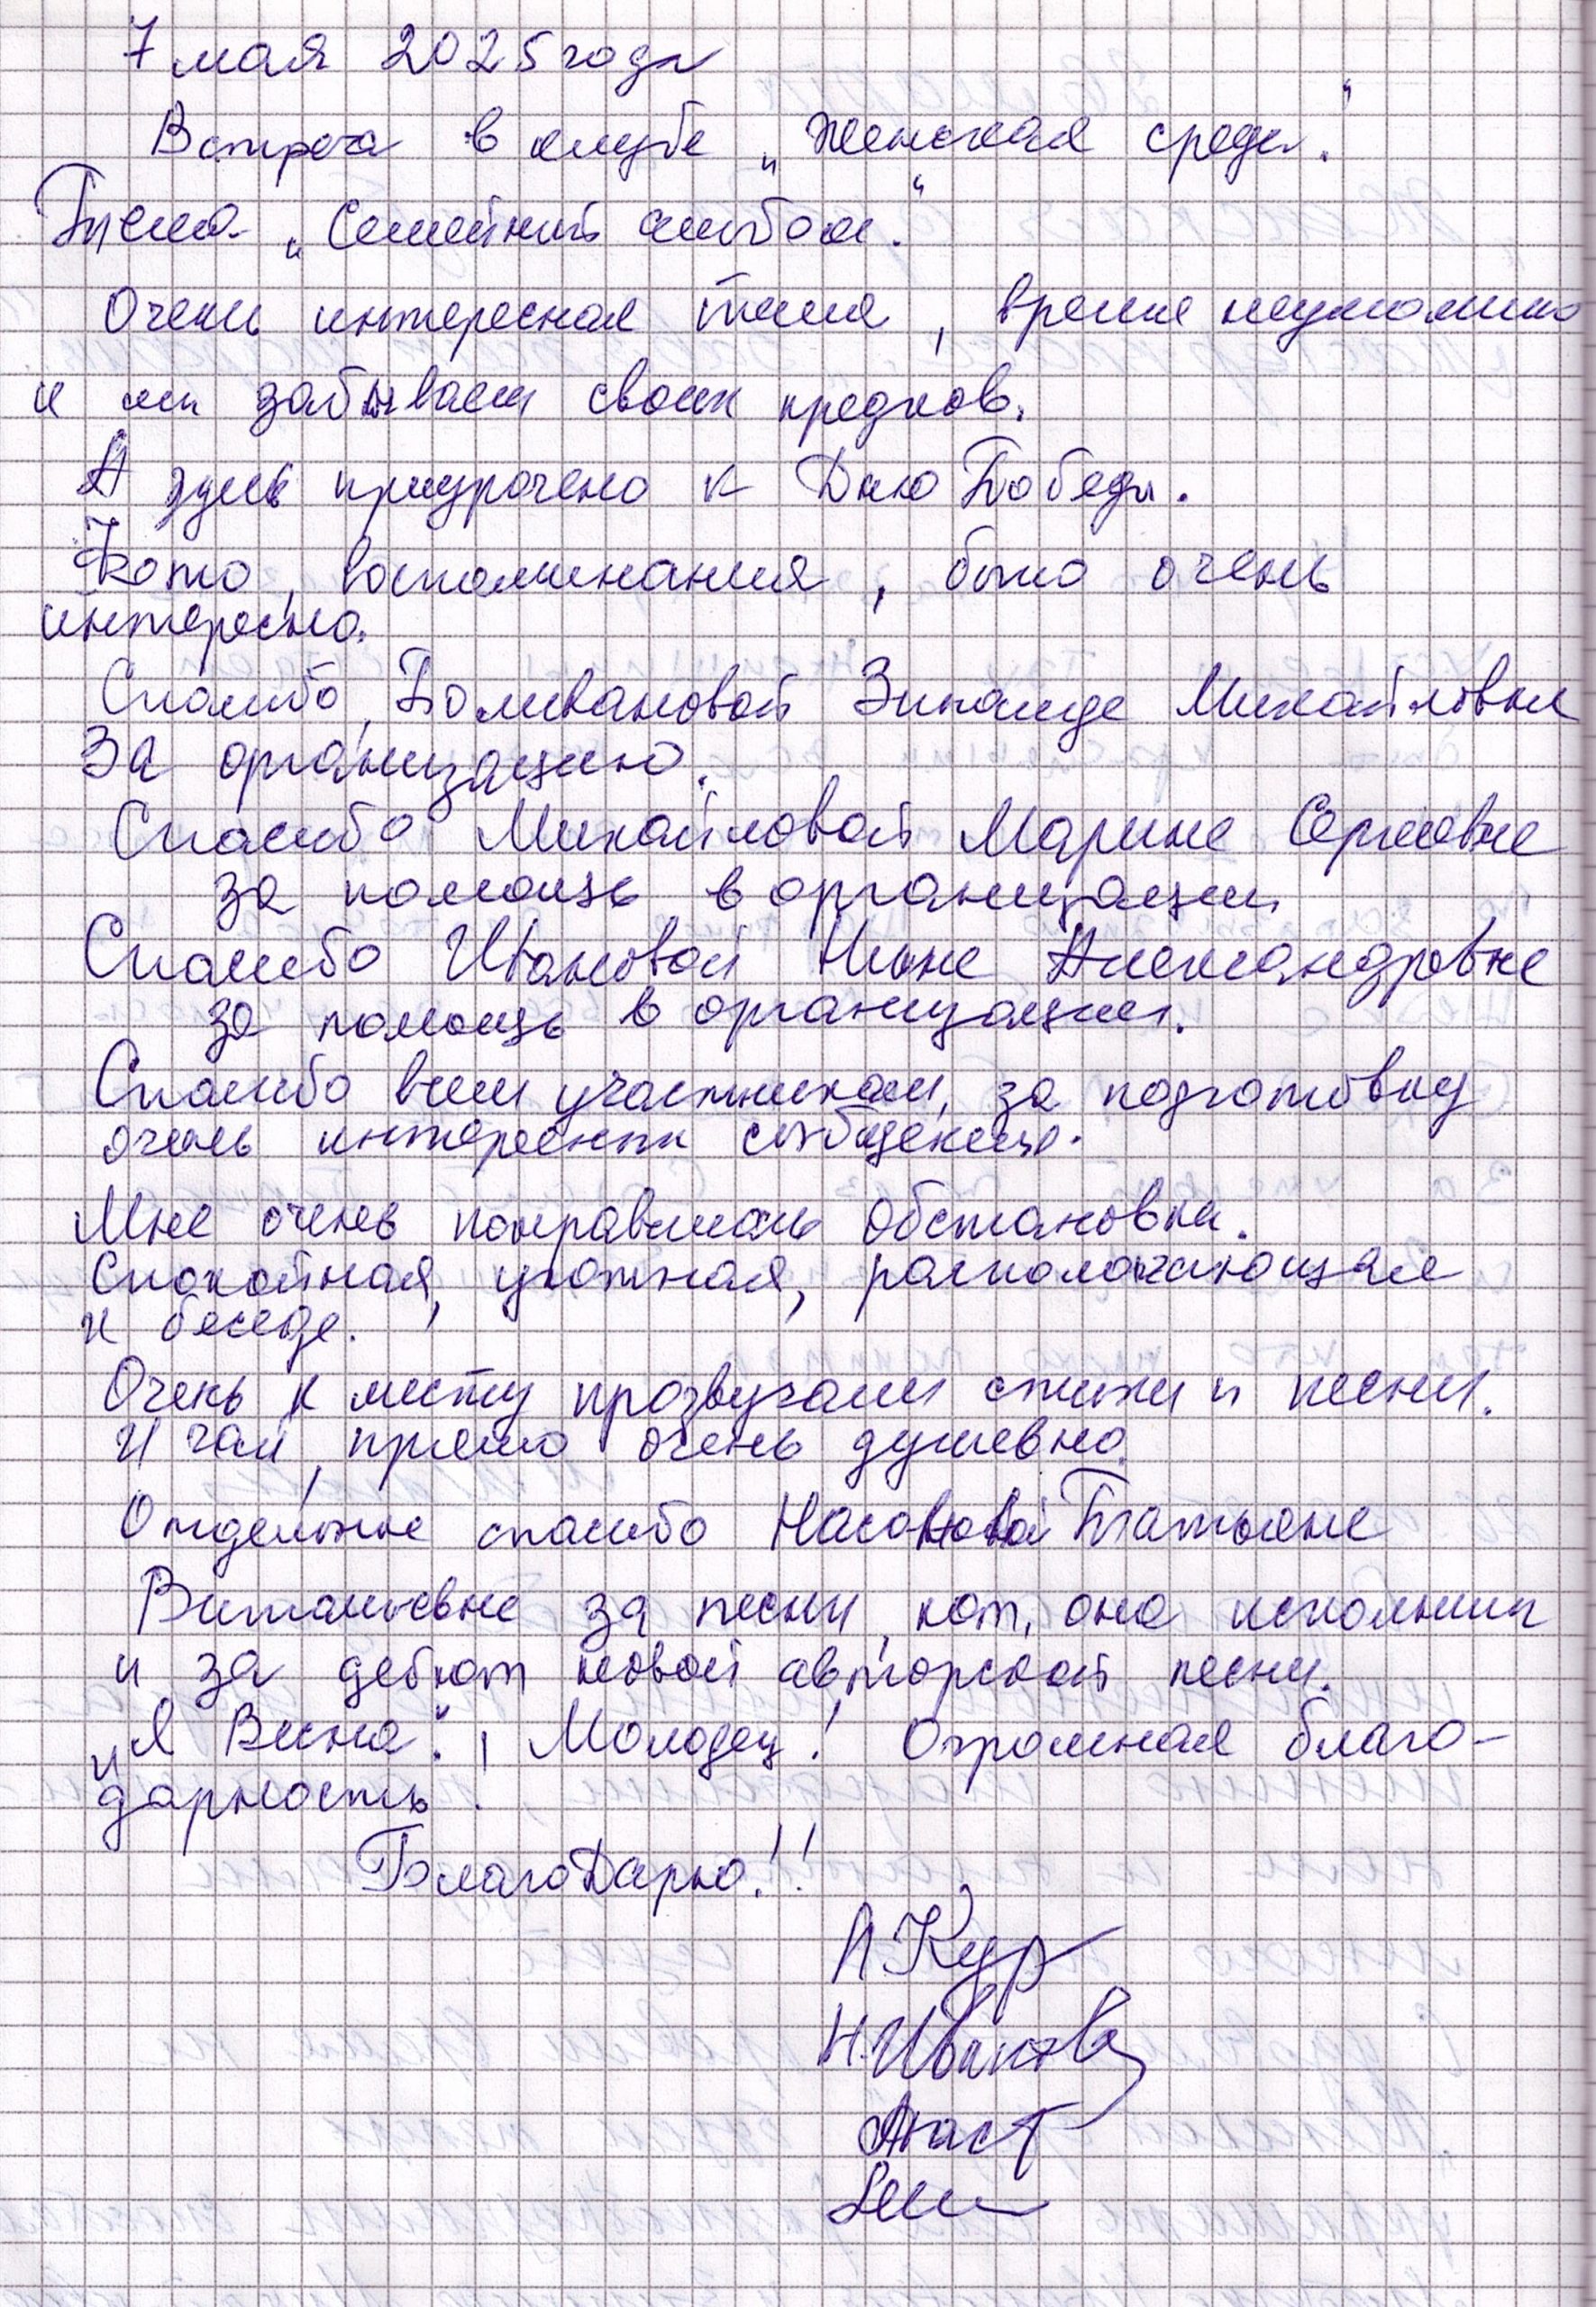 7 мая 2025 года
Встреча в клубе „Женская среда."
Тема „Семейный альбом."
Очень интересная тема, время неумолимо
и мы забываем своих предков.
А здесь приурочено к Дню Победы.
Фото, воспоминания, было очень
интересно.
Спасибо, Поливановой Зинаиде Михайловне
За организацию.
Спасибо Михайловой Марине Сергеевне
за помощь в организации
Спасибо Ивановой Нине Александровне
за помощь в организации.
Спасибо всем участникам, за подготовку
очень интересных сообщений.
Мне очень понравилась обстановка.
Спокойная, уютная, располагающая
к беседе.
Очень к месту прозвучали стихи и песни.
И чай, прямо очень душевно.
Отдельное спасибо Насоновой Татьяне
Витальевне за песни, кот. она исполнила
и за дебют новой авторской песни.
„Я Весна". Молодец! Огромная благо-
дарность.
БлагоДарю!!
Н. Иванова